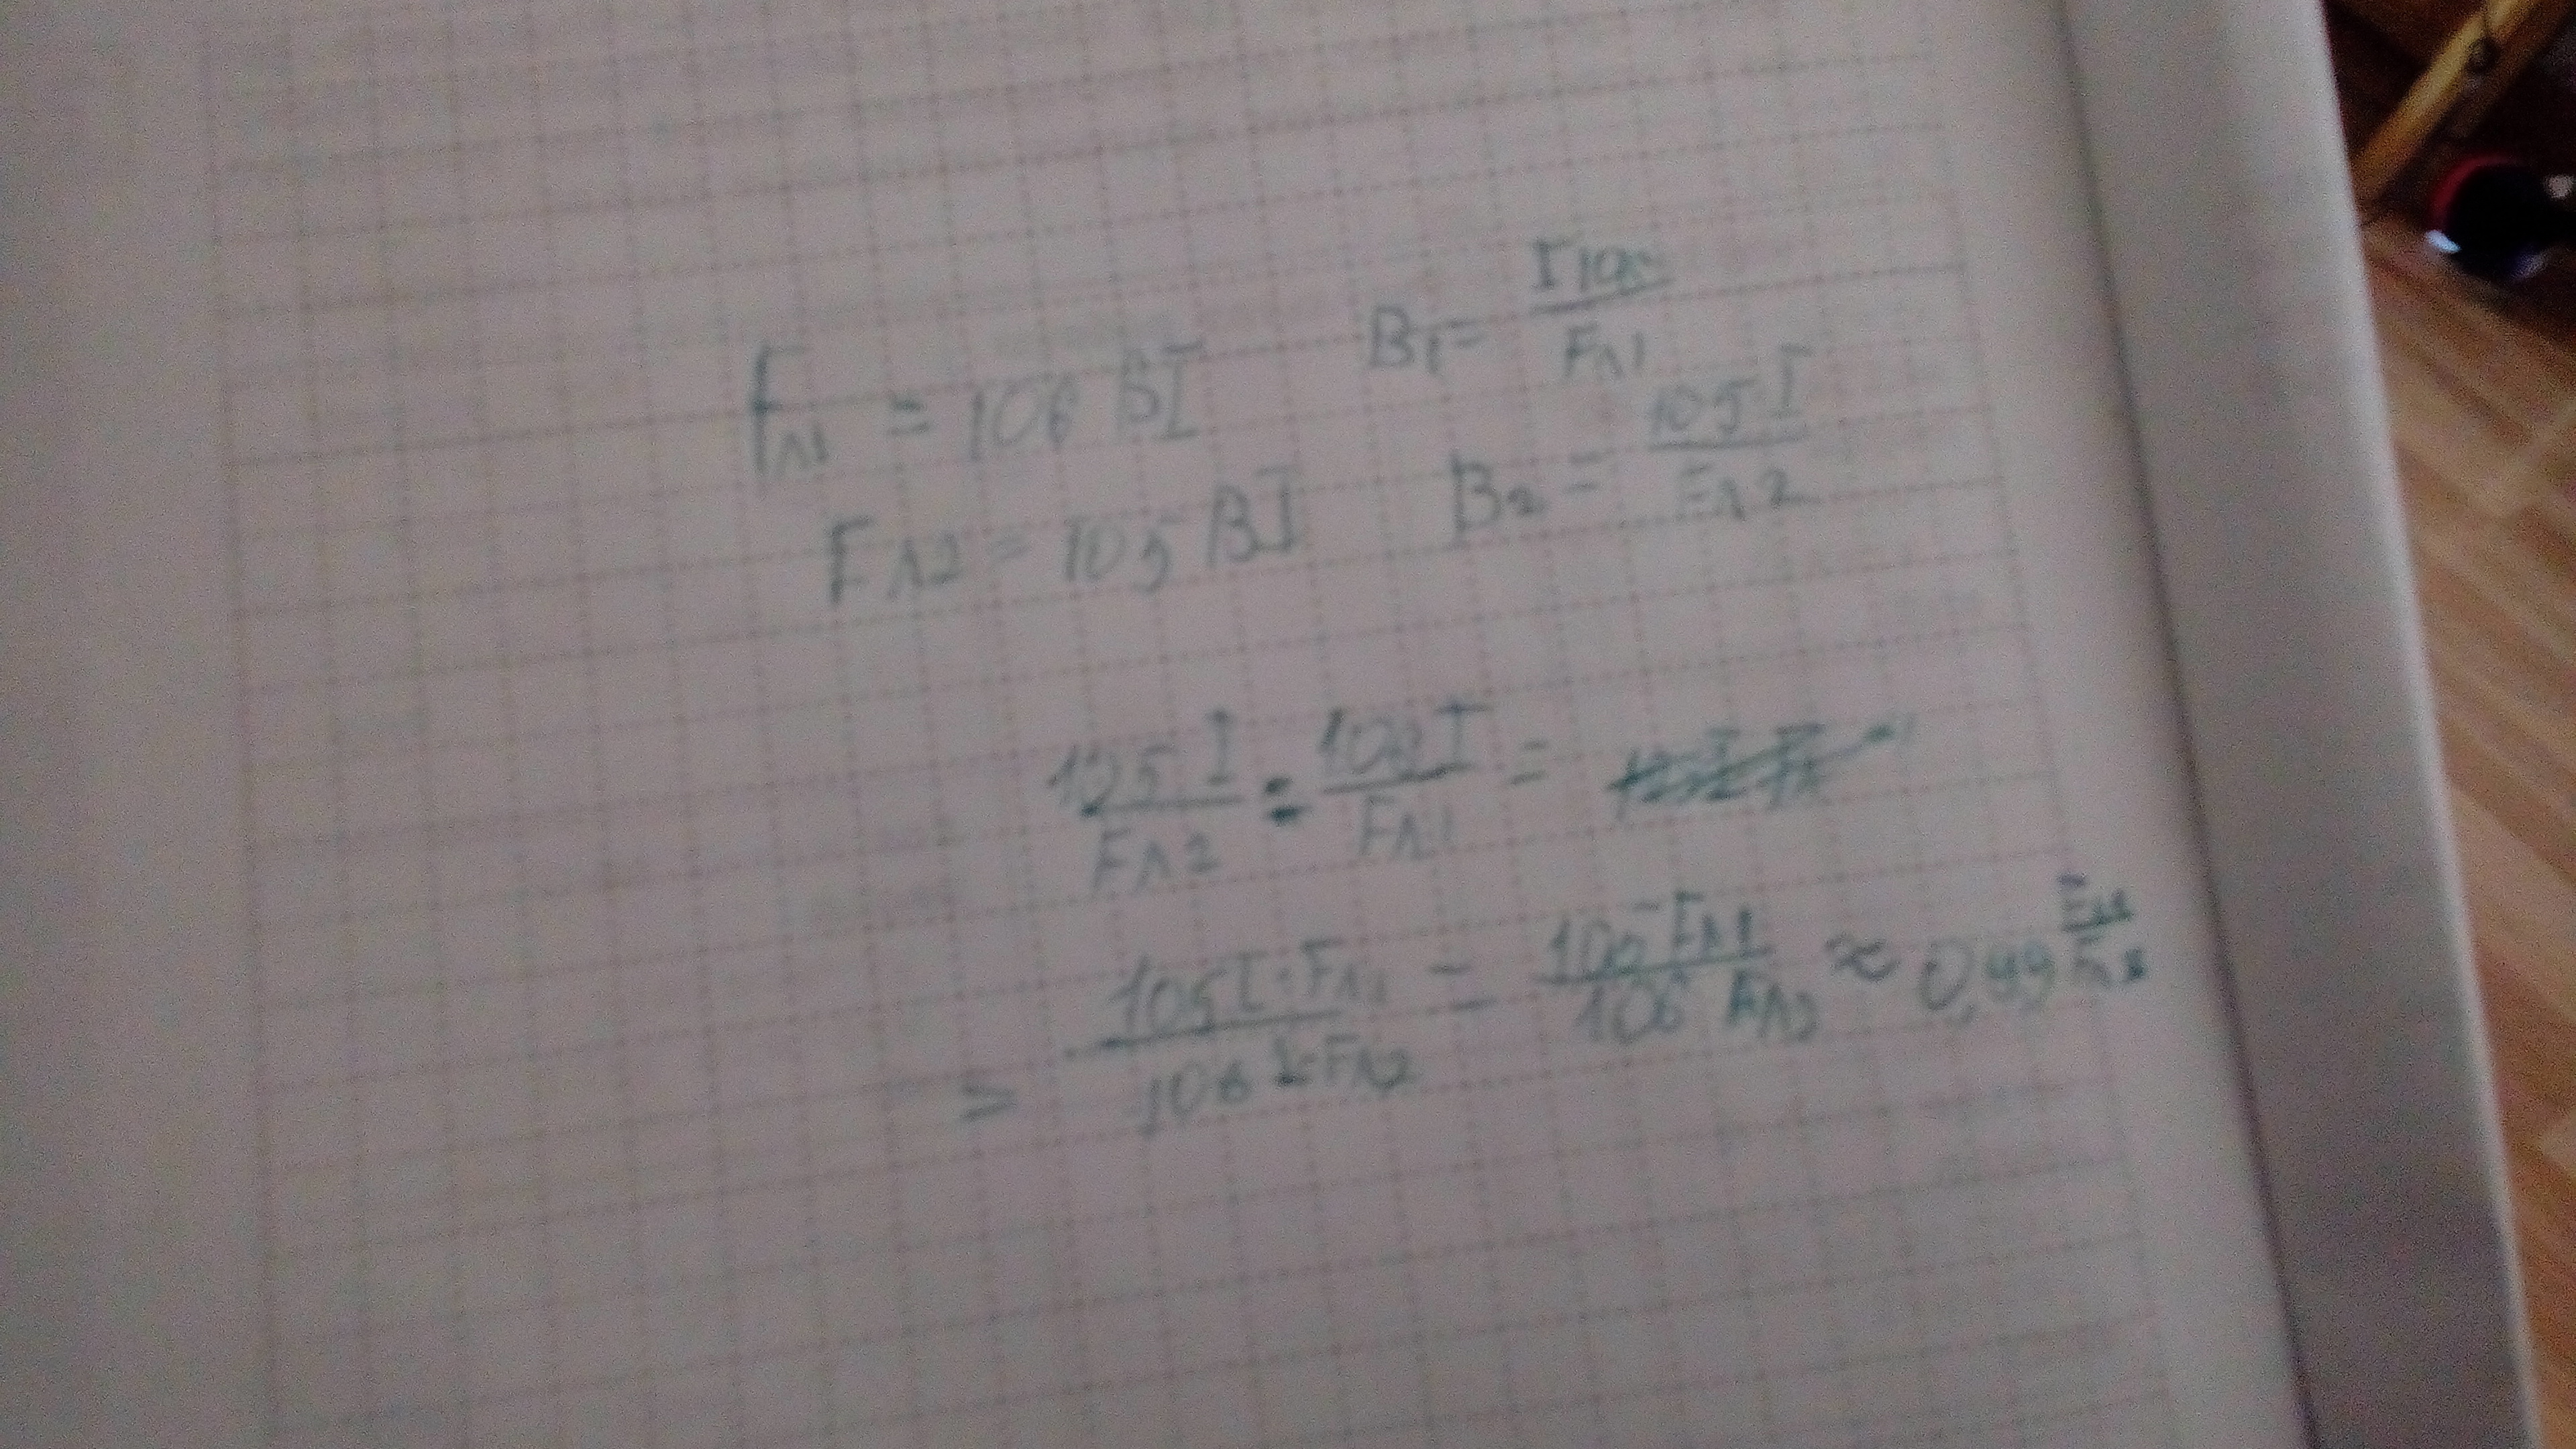 Fл1 = 106 BI B1 = I106 / Fл1
Fл2 = 105 BI B2 = 105 I / Fл2
125 I / Fл2 : 106 I / Fл1 =
= 105 I · Fл1 / 106 I · Fл2 = 105 Fл1 / 106 Fл2 ≈ 0,99 Fл1 / Fл2